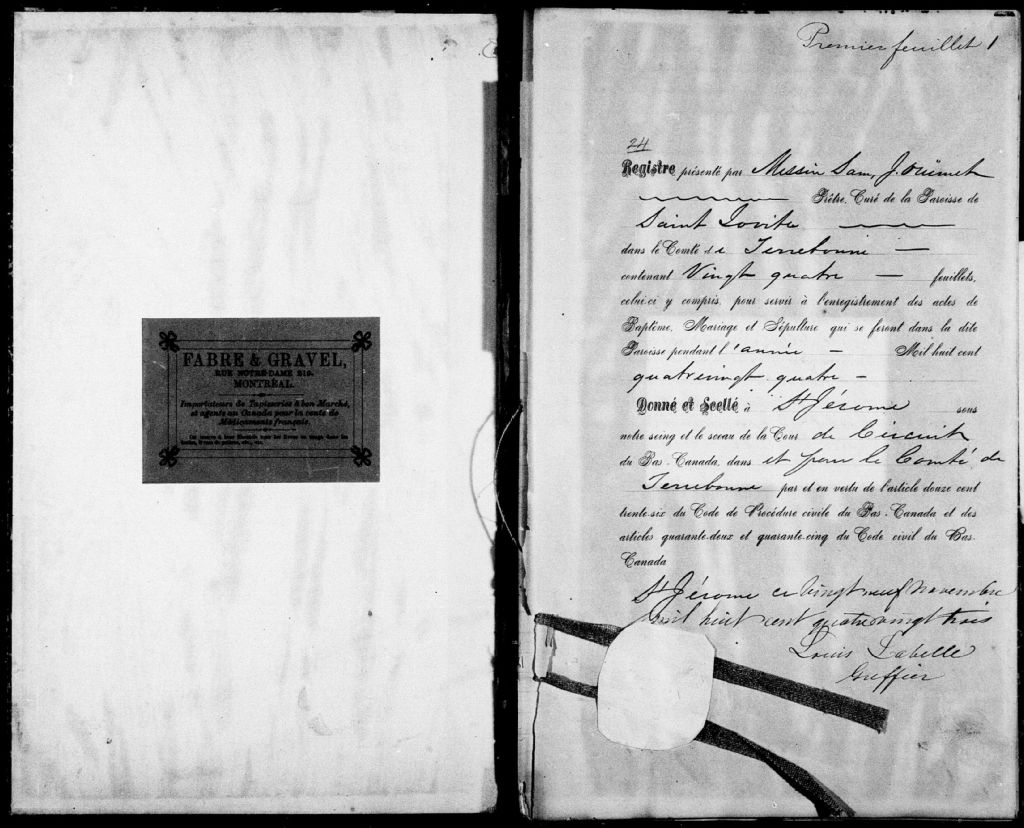 FABRE & GRAVEL,
RUE NOTRE-DAME 219.
MONTRÉAL.
Importateurs de Tapisseries à bon Marché,
et agents au Canada pour la vente de
Médicaments français.
Premier feuillet 1
24
Registre présenté par Messire Sam. J. Ouimet
Prêtre, Curé de la Paroisse de
Saint Jovite
dans le Comté de Terrebonne
contenant Vingt quatre feuillets,
celui-ci y compris, pour servir à l'enregistrement des actes de
Baptême, Mariage et Sépulture qui se feront dans la dite
Paroisse pendant l'année Mil huit cent
quatrevingt quatre
Donné et Scellé à St Jérome sous
notre seing et le sceau de la Cour de Circuit
du Bas-Canada, dans et pour le Comté de
Terrebonne par et en vertu de l'article douze cent
trente-six du Code de Procédure civile du Bas-Canada et des
articles quarante-deux et quarante-cinq du Code civil du Bas-
Canada
St Jérome ce vingt neuf novembre
mil huit cent quatrevingt trois
Louis Labelle
Greffier